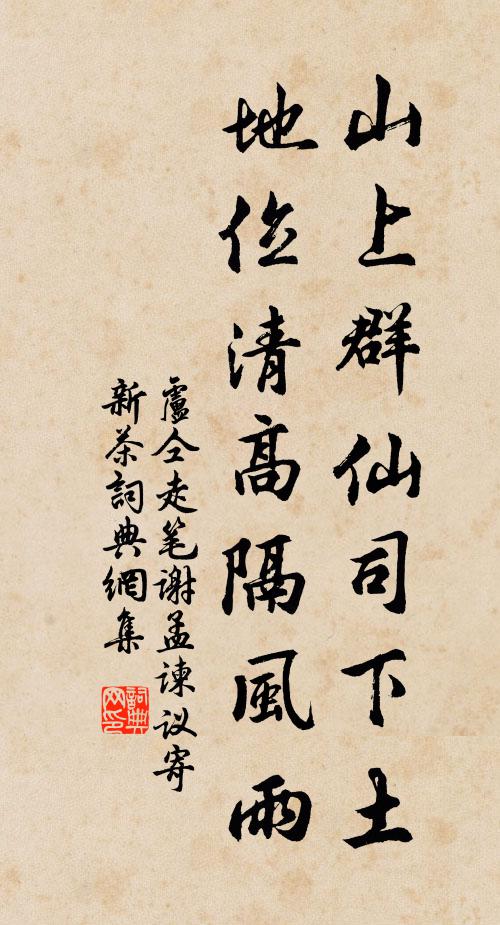 山上群仙司下土
地位清高隔風雨
盧仝走笔謝孟諫议寄
新茶詞典網集
詞典
网印